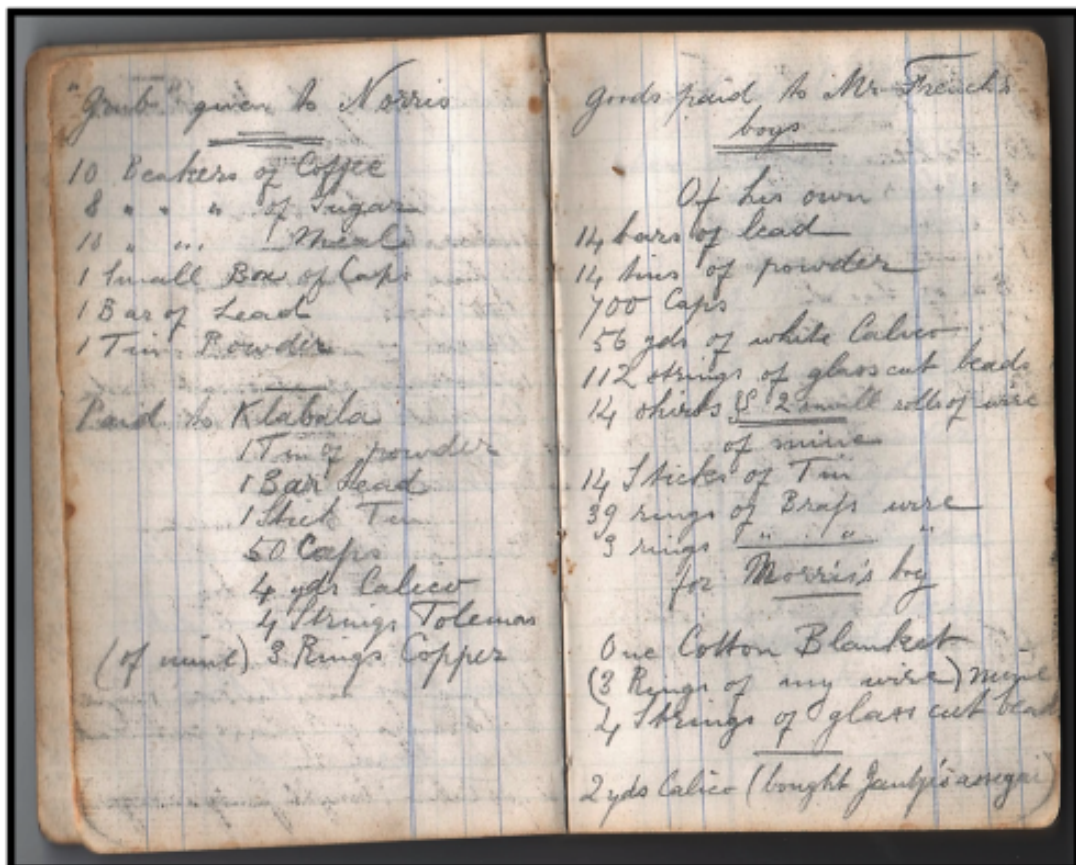 "Grub" given to Norris
10 Beakers of Coffee
8 " " " of Sugar
10 " " " Meal
1 Small Box of Caps
1 Bar of Lead
1 Tin Powder
Paid to Klabala
1 Tin of powder
1 Bar Lead
1 Stick Tin
50 Caps
4 yds Calico
4 Strings
(of mine) 3 Rings Copper
Goods paid to Mr French's
boys
Of his own
14 bars of lead
14 tins of powder
700 Caps
56 yds of white Calico
112 strings of glass cut beads
14 shirts & 2 small rolls of wire
of mine
14 Sticks of Tin
39 rings of Brass wire
3 rings " " "
for Morris's boy
One Cotton Blanket
(3 Rings of my wire) mine
4 Strings of glass cut bead
2 yds Calico (bought Jantji's assegai)